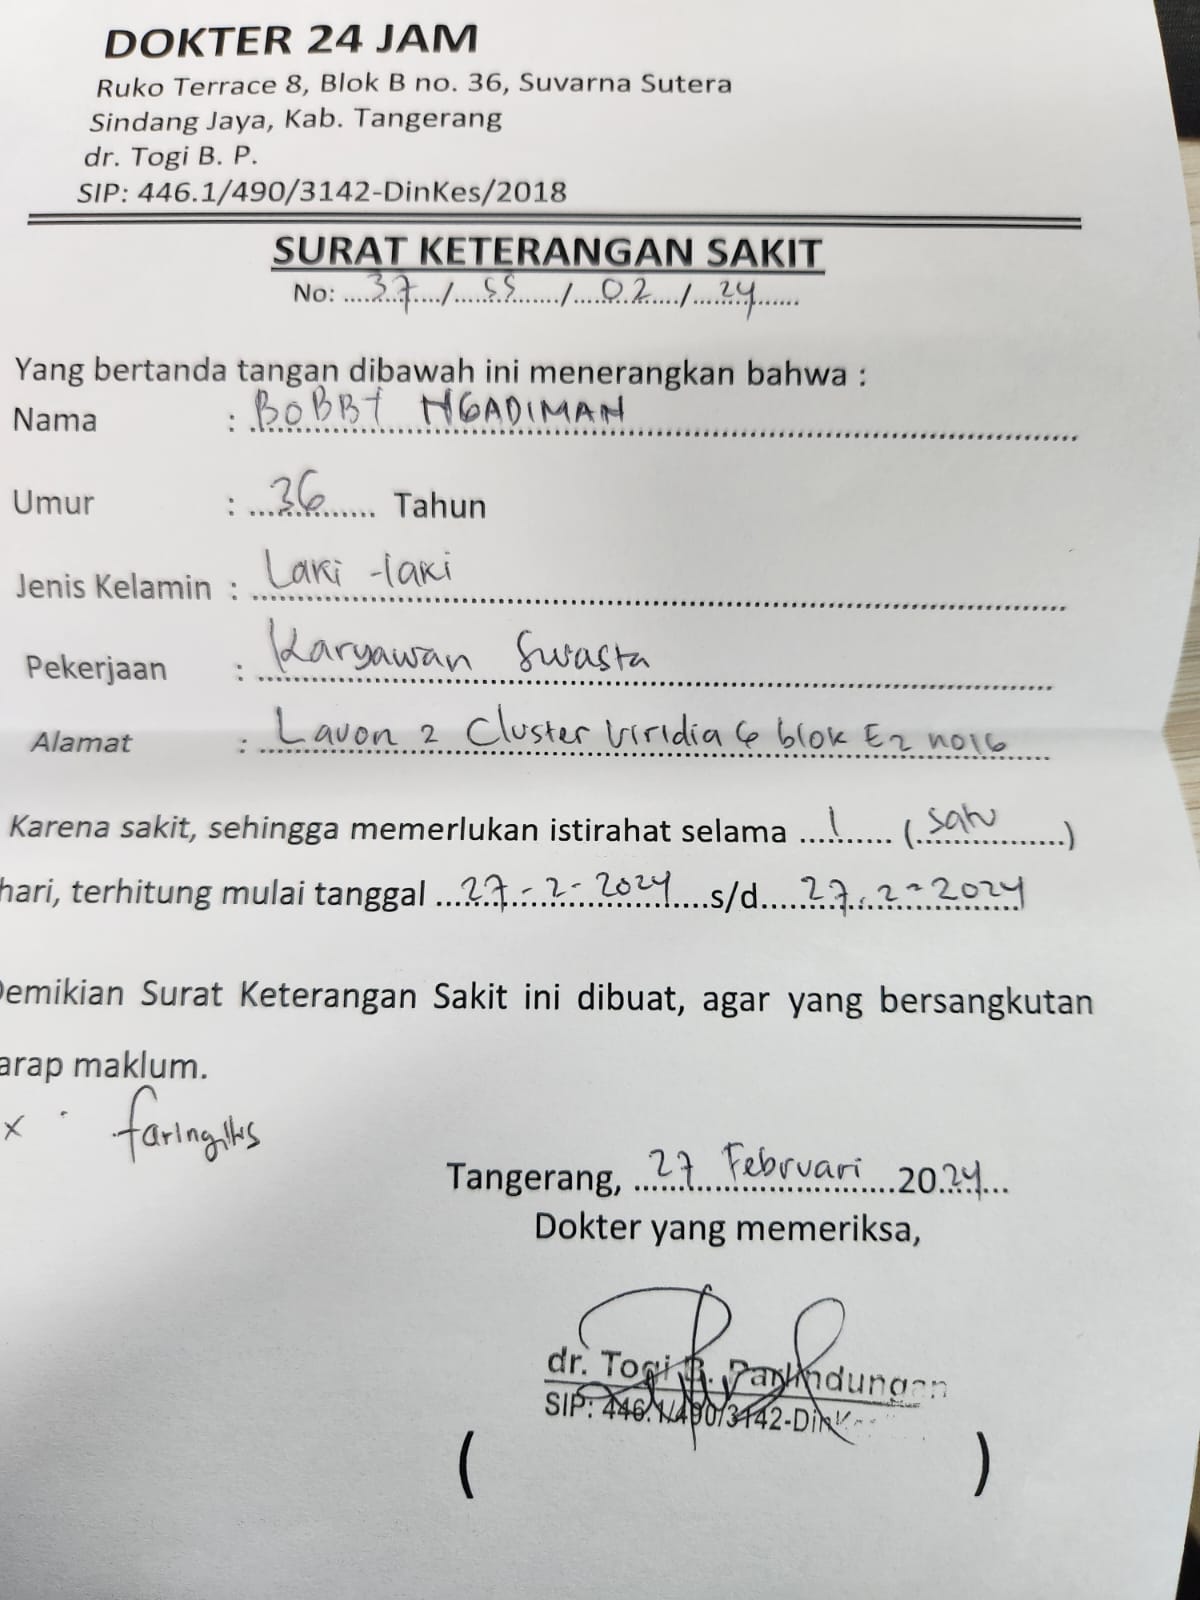 DOKTER 24 JAM
Ruko Terrace 8, Blok B no. 36, Suvarna Sutera
Sindang Jaya, Kab. Tangerang
dr. Togi B. P.
SIP: 446.1/490/3142-DinKes/2018
SURAT KETERANGAN SAKIT
No: ....37..../....SS..../....02..../....24....
Yang bertanda tangan dibawah ini menerangkan bahwa :
Nama : BOBBY NGADIMAN
Umur : 36 Tahun
Jenis Kelamin : Laki-laki
Pekerjaan : Karyawan Swasta
Alamat : Lavon 2 Cluster Viridia 6 blok E2 no16
Karena sakit, sehingga memerlukan istirahat selama ....1.... (.satu....)
hari, terhitung mulai tanggal ...27-2-2024...s/d...27-2-2024
Demikian Surat Keterangan Sakit ini dibuat, agar yang bersangkutan
arap maklum.
x : faringitis
Tangerang, 27 Februari 2024
Dokter yang memeriksa,
dr. Togi B. Parlindungan
SIP: 446.1/490/3142-DinK
( )